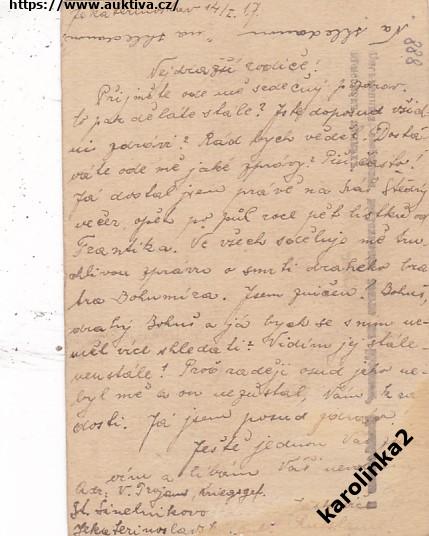 https://www.auktiva.cz/
Jekaterinoslav 14/I. 17.
Na shledanou, na shledanou
888
Nejdražší rodiče!
Přijměte ode mě srdečný pozdrav.
Co pak děláte stále? Jste doposud všich-
ni zdrávi? Rád bych věděl. Dostá-
váte ode mě jaké zprávy? Píši často!
Já dostal jsem právě na náš Štědrý
večer opět po půl roce pět lístků od
Frantíka. Ve všech sděluje mě tru-
chlivou zprávu o smrti drahého bra-
tra Bohumíra. Jsem zničen. Bohuš,
drahý Bohuš a já bych se s ním ne-
měl víc shledati? Vidím jej stále
neustále! Proč raději osud jeho ne-
byl mě a on nezůstal, Vám k ra-
dosti. Já jsem posud zdráv
Ještě jednou Vás
a líbám Váš
Adr: V. Trojans, Kriegsgef.
St. Sinelnikovo
Jekaterinoslav
karolinka2